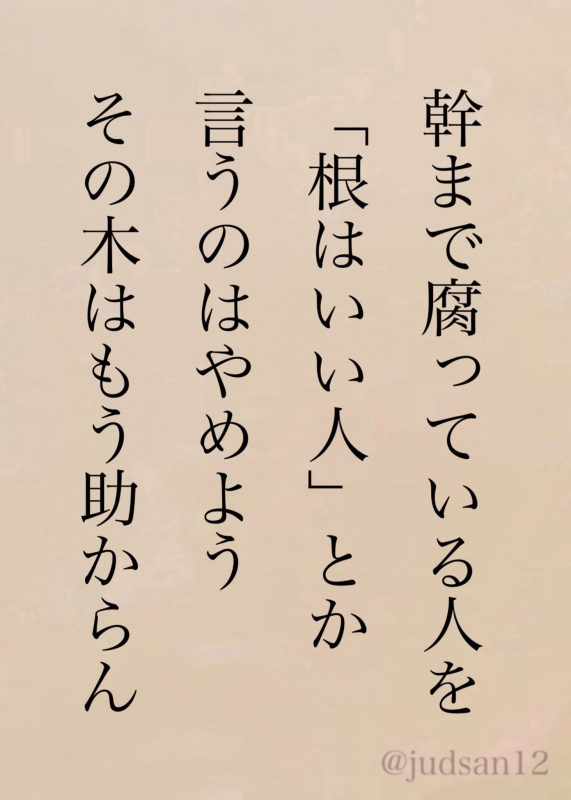 幹まで腐っている人を
「根はいい人」とか
言うのはやめよう
その木はもう助からん
@judsan12